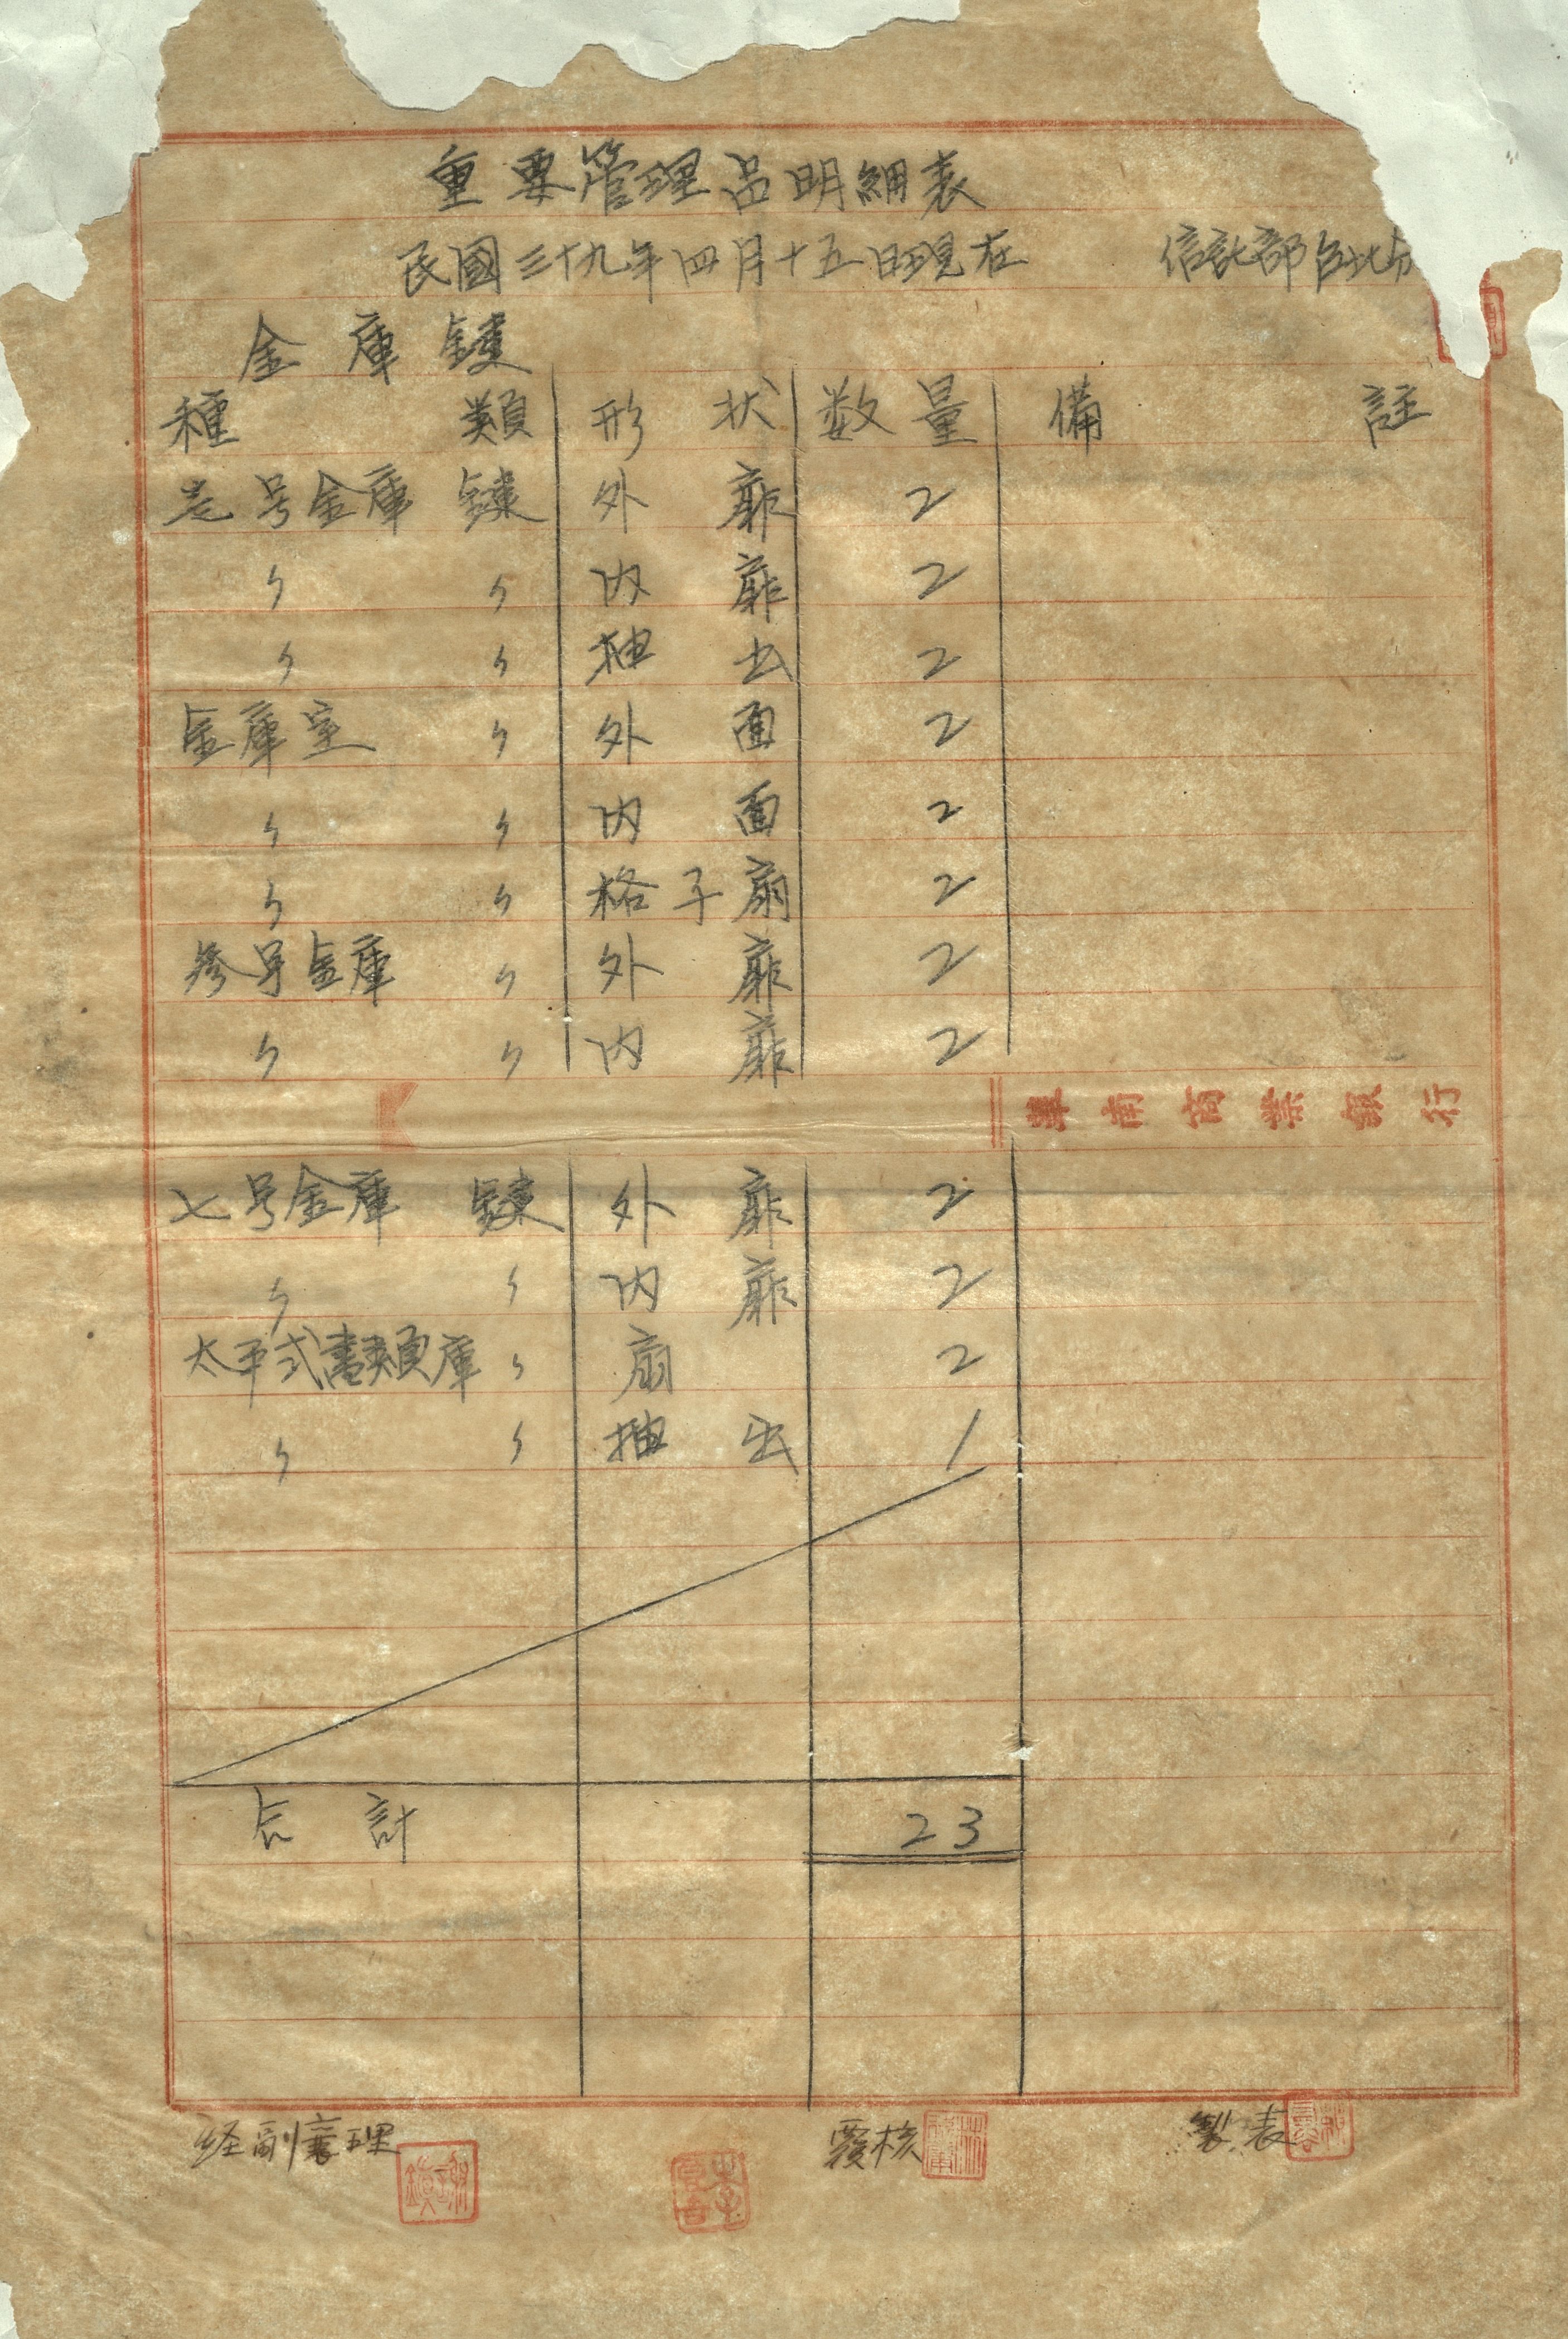 重要管理品明細表
民國三十九年四月十五日現在 信託部台北分
金庫鍵
種類 形狀 数量 備註
壱号金庫鍵 外扉 2
〃 〃 内扉 2
〃 〃 抽出 2
金庫室 〃 外面 2
〃 〃 内面 2
〃 〃 格子扇 2
参号金庫 〃 外扉 2
〃 〃 内扉 2
華南商業銀行
七号金庫鍵 外扉 2
〃 〃 内扉 2
太平式書類庫 〃 扇 2
〃 〃 抽出 1
合計 23
経副襄理 覆核 製表